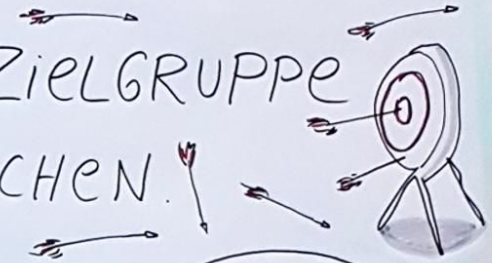 ZieLGRUPPe
CHeN.